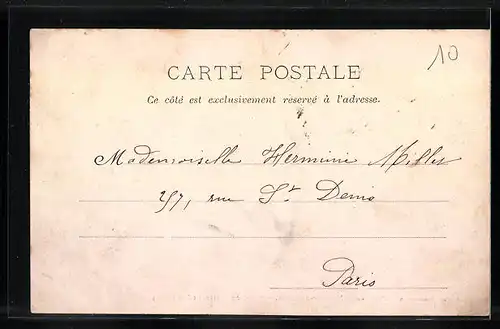 10
CARTE POSTALE
Ce côté est exclusivement réservé à l'adresse.
Mademoiselle Hermine Millet
257, rue St Denis
Paris